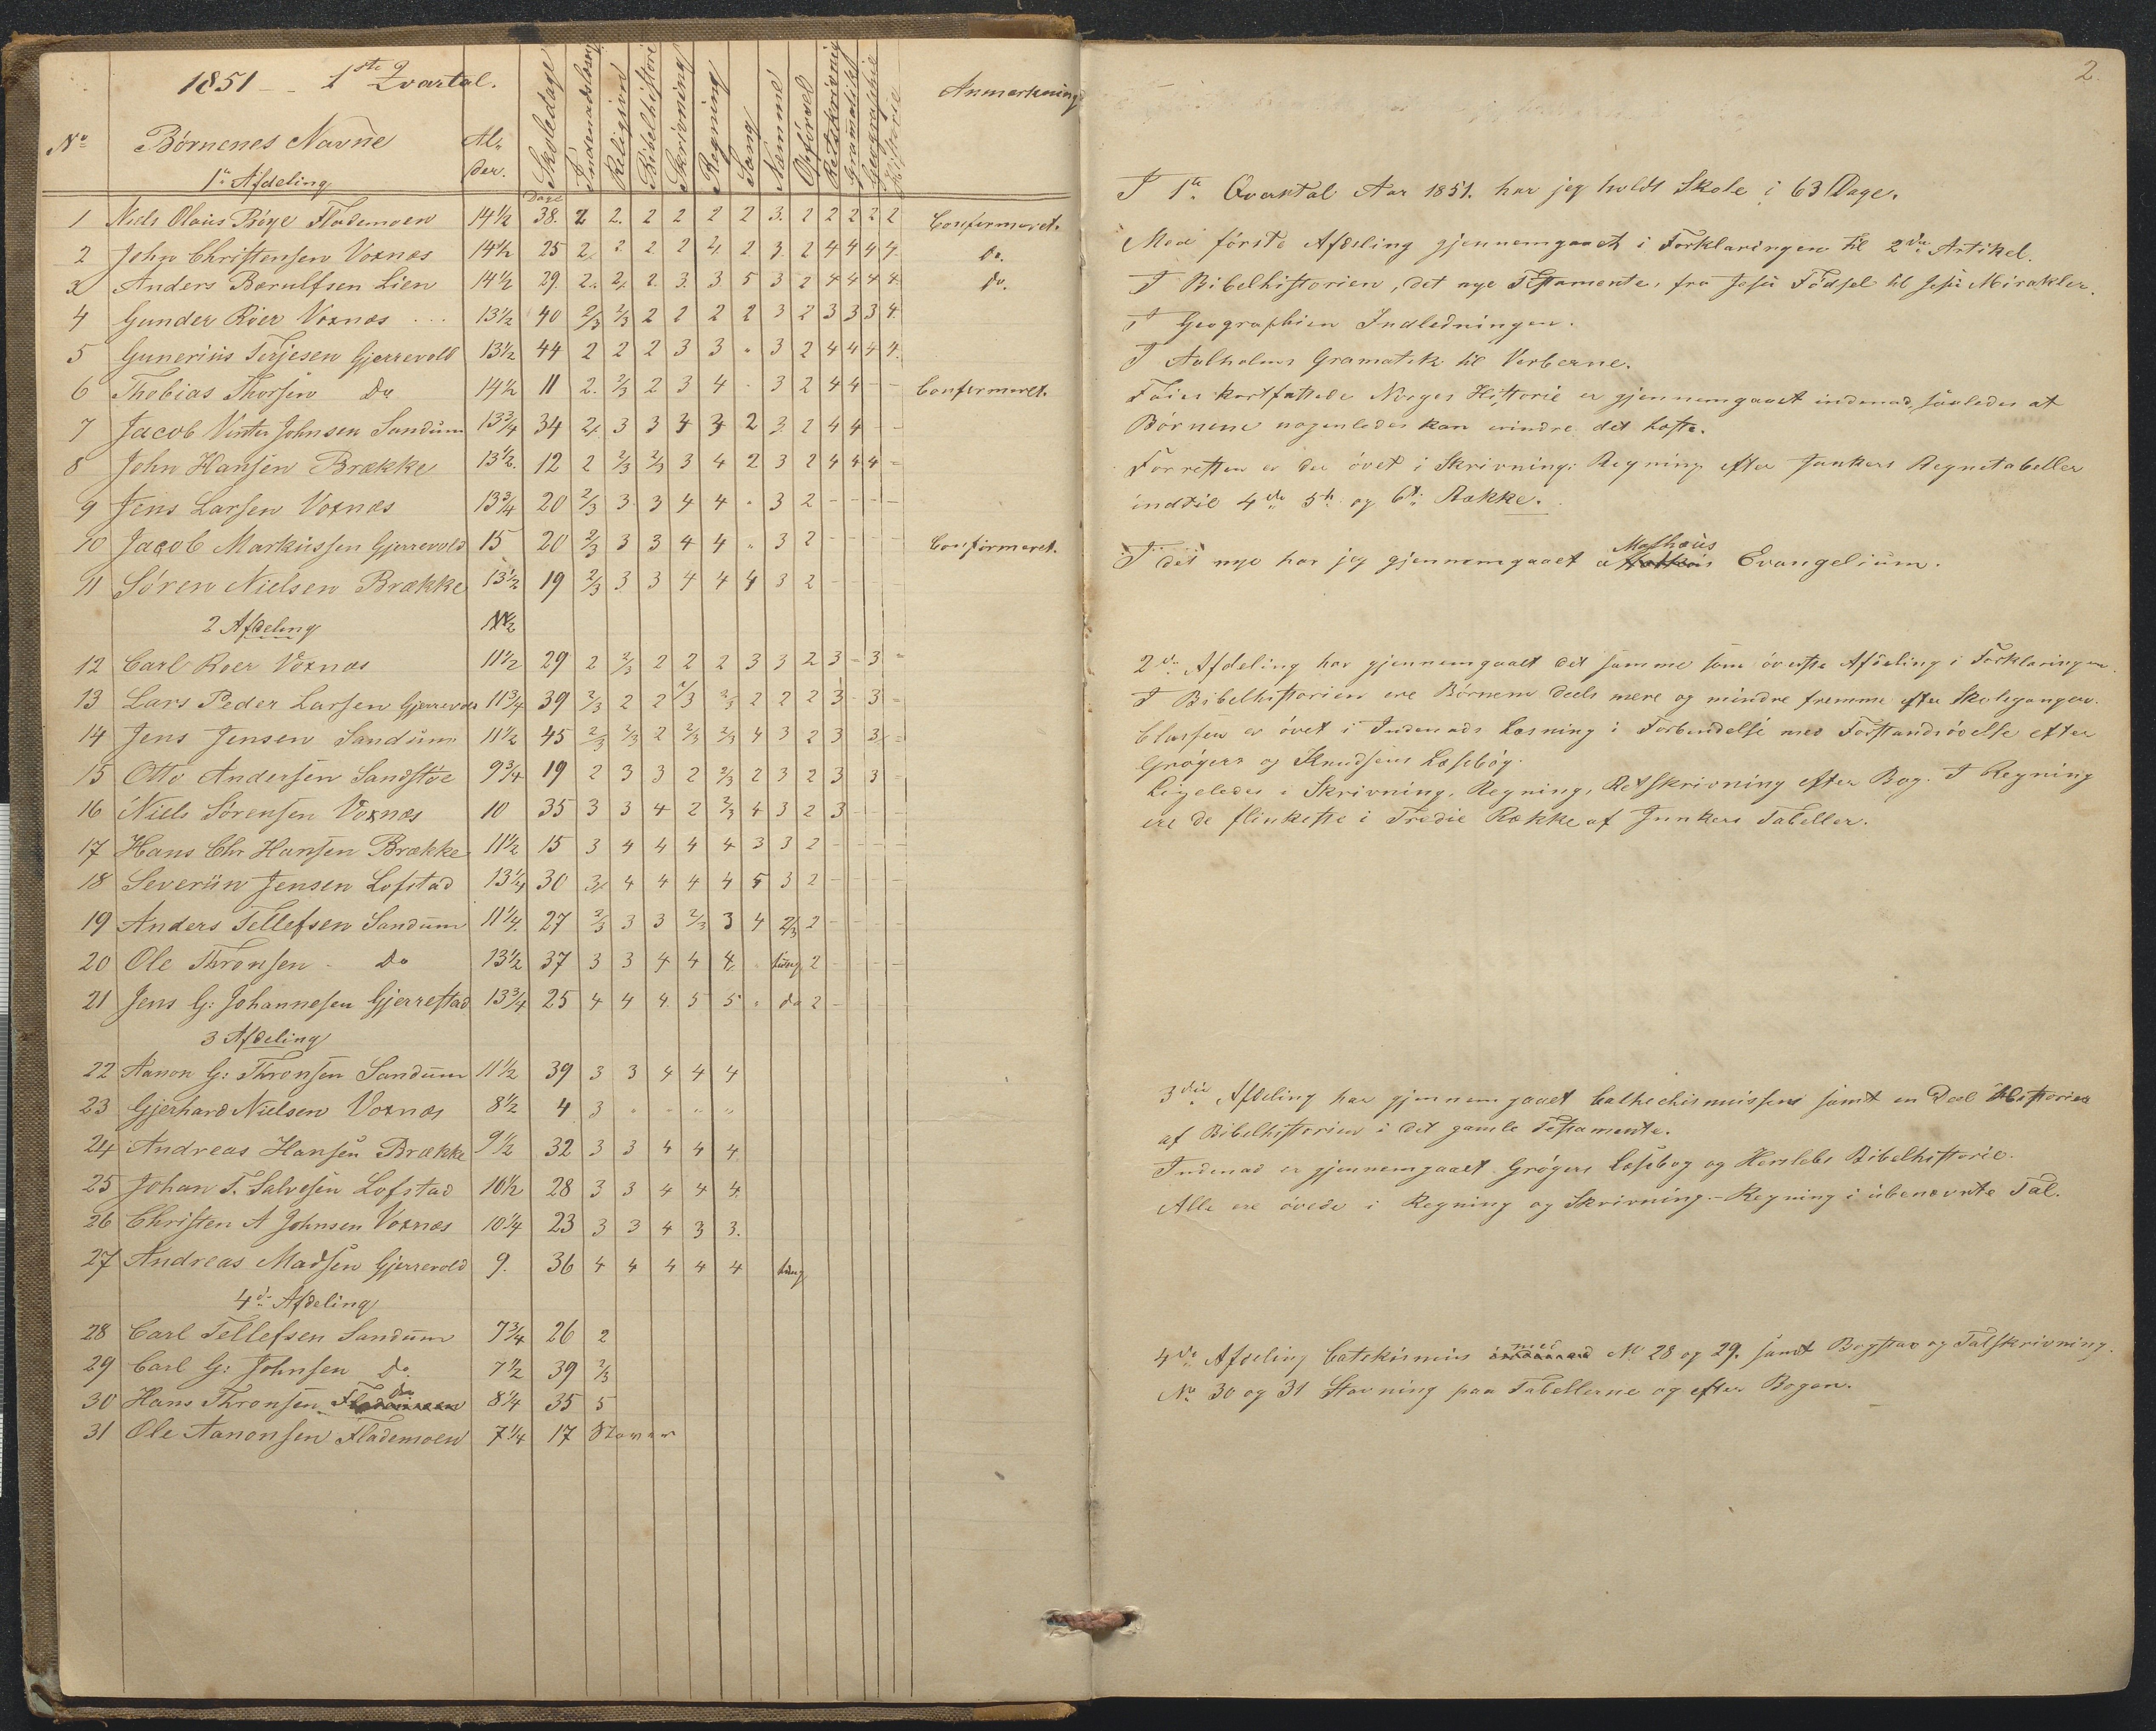 1851 - - 1ste Qvartal.
No Børnenes Navne Al- der. Skoledage Indenadslæsning Religion Bibelhistorie Skrivning Regning Sang Nemme Opførsel Retskrivnig Gramatik Geographie Historie Anmærkning
1te Afdeling Dage
1 Niels Olaus Bøye Flademoen 14½ 38. 2 2. 2 2 2 2 3. 2 2 2 2 2 Confirmeret.
2 John Christensen Voxnæs 14½ 25 2. 2 2 2 4. 2 3. 2 4 4 4 4. do.
3 Anders Bærulfsen Lien 14½ 29. 2. 2. 2. 3. 3 5 3 2 4 4 4 4. do.
4 Gunder Roer Voxnæs 13½ 40 2/3 2/3 2 2 2 2 3 2 3 3 3 4.
5 Gunerius Terjesen Gjerrevold 13½ 44 2 2 2 3 3 " 3 2 4 4 4 4.
6 Thobias Thorsen Do 14½ 11 2. 2/3 2 3 4 - 3 2 4 4 - - Confirmeret.
7 Jacob Vinter Johnsen Sandum 13¾ 34 2. 3 3 3 3 2 3. 2 4 4 - -
8 John Hansen Brække 13½. 12 2 2/3 2/3 3 4 2 3 2 4 4 4 -
9 Jens Larsen Voxnæs 13¾ 20 2/3 3. 3 4 4 " 3 2 - - - -
10 Jacob Markussen Gjerrevold 15 20 2/3 3 3 4 4 " 3 2 - - - - Confirmeret.
11 Søren Nielsen Brække 13½ 19 2/3 3 3 4 4 4 3 2 -
2 Afdeling
12 Carl Roer Voxnæs 11½ 29 2 2/3 2 2 2 3 3 2 3 - 3 -
13 Lars Peder Larsen Gjerrevold 11¾ 39 2/3 2 2 2/3 2/3 2 2 2 3 - 3 -
14 Jens Jensen Sandum 11½ 45 2/3 2/3 2 2/3 2/3 4 3 2 3 3 -
15 Otto Andersen Sandstøe 9¾ 19 2 3 3 2 2/3 2 3 2 3 3 -
16 Niels Sørensen Voxnæs 10 35 3 3 4 2 2/3 4 3 2 3 - - -
17 Hans Chr Hansen Brække 11½ 15 3 4 4 4 4 3 3 2 - - - -
18 Severün Jensen Lofstad 13¼ 30 3. 4 4 4 4 5 3 2 - - - -
19 Anders Tellefsen Sandum 11¼. 27 2/3 3 3 2/3 3 4 2/3 2 - - - -
20 Ole Thronsen - Do 13½ 37 3 3 4 4 4. tung 2 - - - -
21 Jens G: Johannesen Gjerrestad 13¾ 25 4 4 4. 5 5 " do 2 - - -
3 Afdeling
22 Aanon G: Thronsen Sandum 11½ 39 3 3 4 4 4
23 Gjerhard Nielsen Voxnæs 8½ 4 3 " " " "
24 Andreas Hansen Brække 9½ 32 3 3 4 4 4.
25 Johan T. Salvesen Lofstad 10½ 28 3 3 4 4 4.
26 Christen A Johnsen Voxnæs 10¼ 23 3 3 4 3 3.
27 Andreas Madsen Gjerrevold 9. 36 4 4 4 4 4 tung
4de Afdeling
28 Carl Tellefsen Sandum 7¾ 26 2
29 Carl G: Johnsen Do. 7½ 39 2/3
30 Hans Thronsen do 8¼ 35 5
31 Ole Aanonsen Flademoen 7¼ 17 Staver
2.
I 1te Qvartal Aar 1851. har jeg holdt Skole i 63 Dage.
Med første Afdeling gjennemgaaet i Forklaringen til 2den Artikel.
I Bibelhistorien, det nye Testamente, fra Jesu Fødsel til Jesu Mirakler.
I Geographien Indledningen.
I Aalholms Gramatik til Verberne.
Faies kortfattede Norges Historie er gjennemgaaet indenad, saaledes at
Børnene nogenledes kan erindre det Læste.
Forresten er der øvet i Skrivning: Regning efter Junkers Regnetabeller
indtil 4de 5te og 6te Række.
I det nye har jeg gjennemgaaet Mathæus Evangelium.
2den Afdeling har gjennemgaaet det samme som øverste Afdeling i Forklaringen.
I Bibelhistorien ere Børnene deels mere og mindre fremme efter Skolegangen.
Classen er øvet i Indenads Læsning i Forbindelse med Forstandsøvelse efter
Grøgers og Knudsens Læsebog.
Ligeledes i Skrivning, Regning, Retskrivning efter Bog. I Regning
ere de flinkeste i Tredie Række af Junkers Tabeller.
3die Afdeling har gjennemgaaet Cathechismussen samt en Deel Historier
af Bibelhistorien i det gamle Testamente.
Indenad er gjennemgaaet Grøgers Læsebog og Herslebs Bibelhistorie.
Alle ere øvede i Regning og Skrivning. - Regning i ubenævnte Tal.
4de Afdeling Catekismus med No 28 og 29. samt Bogstav og Talskrivning.
No 30 og 31 Stavning paa Tabellerne og efter Bogen.